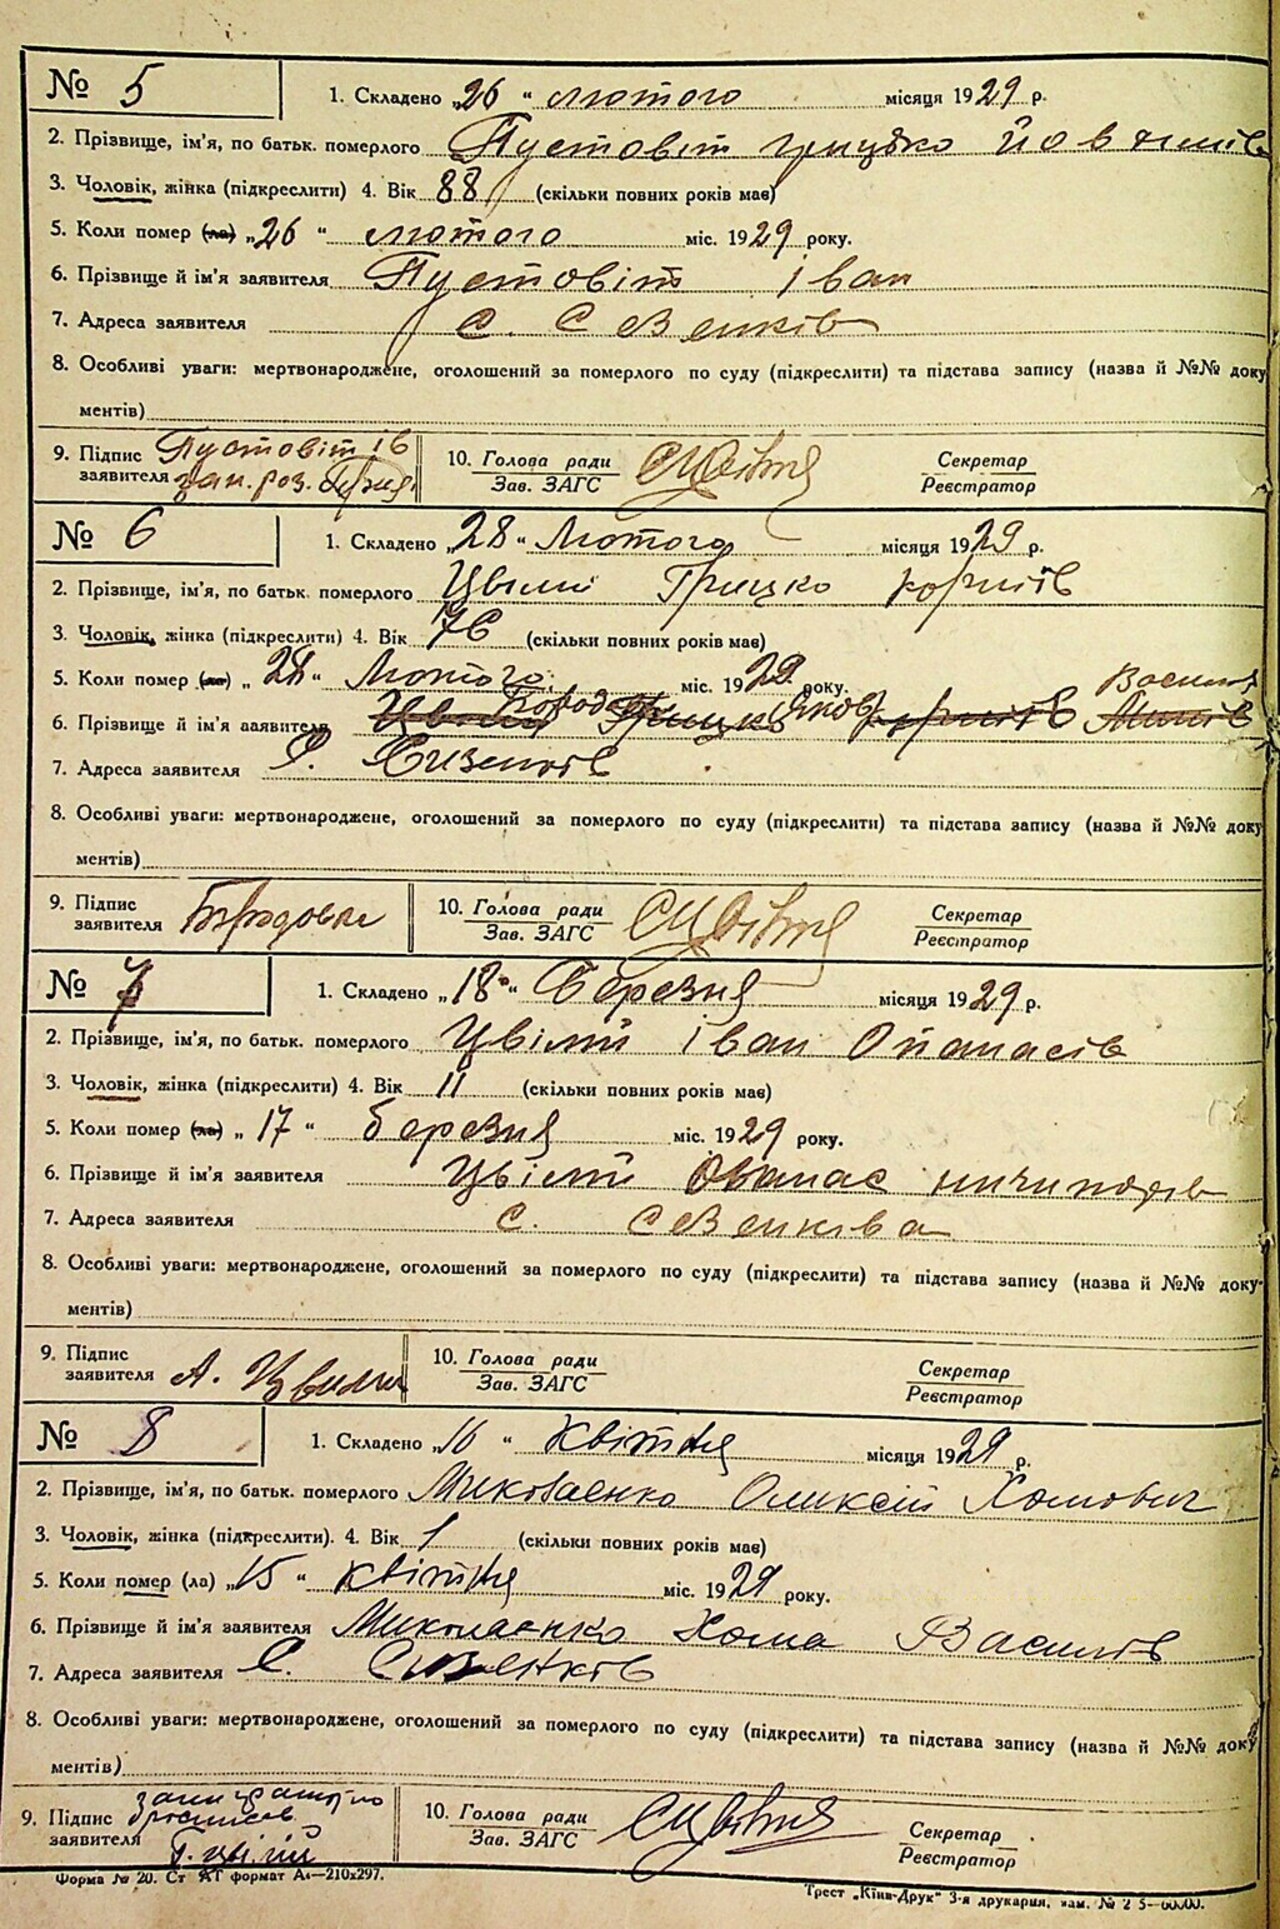 № 5 1. Складено „26“ лютого місяця 1929 р.
2. Прізвище, ім'я, по батьк. померлого Пустовіт Грицько
3. Чоловік, жінка (підкреслити) 4. Вік 88 (скільки повних років має)
5. Коли помер (ла) „26“ лютого міс. 1929 року.
6. Прізвище й ім'я заявителя Пустовіт Іван
7. Адреса заявителя С. Сезенків
8. Особливі уваги: мертвонароджене, оголошений за померлого по суду (підкреслити) та підстава запису (назва й №№ доку
ментів)
9. Підпис заявителя Пустовіт Ів 10. Голова ради Зав. ЗАГС Секретар Реєстратор
№ 6 1. Складено „28“ Лютого місяця 1929 р.
2. Прізвище, ім'я, по батьк. померлого Цвілий Грицко Корніїв
3. Чоловік, жінка (підкреслити) 4. Вік 76 (скільки повних років має)
5. Коли помер (ла) „28“ Лютого міс. 1929 року.
6. Прізвище й ім'я заявителя
7. Адреса заявителя С. Сизенків
8. Особливі уваги: мертвонароджене, оголошений за померлого по суду (підкреслити) та підстава запису (назва й №№ доку
ментів)
9. Підпис заявителя 10. Голова ради Зав. ЗАГС Секретар Реєстратор
№ 7 1. Складено „18“ Березня місяця 1929 р.
2. Прізвище, ім'я, по батьк. померлого Цвілий Іван Опанасів
3. Чоловік, жінка (підкреслити) 4. Вік 11 (скільки повних років має)
5. Коли помер (ла) „17“ березня міс. 1929 року.
6. Прізвище й ім'я заявителя Цвілий Опанас ничипорів
7. Адреса заявителя С. Сезенківа
8. Особливі уваги: мертвонароджене, оголошений за померлого по суду (підкреслити) та підстава запису (назва й №№ доку-
ментів)
9. Підпис заявителя А. Цвилий 10. Голова ради Зав. ЗАГС Секретар Реєстратор
№ 8 1. Складено „16“ Квітня місяця 1929 р.
2. Прізвище, ім'я, по батьк. померлого Миколаєнко Оликсій Хомович
3. Чоловік, жінка (підкреслити). 4. Вік 1 (скільки повних років має)
5. Коли помер (ла) „15“ квітня міс. 1929 року.
6. Прізвище й ім'я заявителя Миколаєнко Хома Василів
7. Адреса заявителя С. Сизенків
8. Особливі уваги: мертвонароджене, оголошений за померлого по суду (підкреслити) та підстава запису (назва й №№ доку
ментів)
9. Підпис заявителя 10. Голова ради Зав. ЗАГС Секретар Реєстратор
Форма № 20. Ст АТ формат А4—210х297.
Трест „Київ-Друк“ 3-я друкарня, зам. №